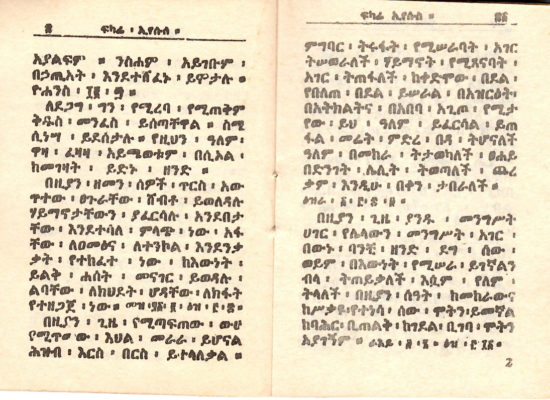 ፪ ፍካሬ ፡ ኢየሱስ ።
አያልፍም ። ንስሐም ፡ አይገቡም ፡
በኃጢአት ፡ እንደተሸፈኑ ፡ ይሞታሉ ።
ዮሐንስ ፡ ፲፪ ፡
ለደጋግ ፡ ግን ፡ የሚረባ ፡ የሚጠቅም
ቅዱስ ፡ መንፈስ ፡ ይሰጣቸዋል ። ስሜ
ሲነሣ ፡ ይደሰታሉ ። የዚህን ፡ ዓለም ፡
ዋዛ ፡ ፈዛዛ ፡ አይሜወቱም ፡ በሲኦል ፡
ከመገዛት ፡ ይድኑ ፡ ዘንድ ።
በዚያን ፡ ዘመን ፡ ሰዎች ፡ ጥርስ ፡ አው
ጥተው ፡ ፀጉራቸው ፡ ሸብቶ ፡ ይወለዳሉ
ሃይማኖታቸውን ፡ ያፈርሳሉ ፡ አንደበታ
ቸው ፡ እንደተሳለ ፡ ምላጭ ፡ ነው ፡ አፋ
ቸው ፡ ለዐመፅና ፡ ለተንኮል ፡ እንደንቃ
ቃት ፡ የተከፈተ ፡ ነው ፡ ከእውነት ፡
ይልቅ ፡ ሐሰት ፡ መናገር ፡ ይወዳሉ ፡
ልባቸው ፡ ለክህደት ፡ ሆዳቸው ፡ ለክፋት
የተዘጋጀ ፡ ነው ።
በዚያን ፡ ጊዜ ፡ የሚጣፍጠው ፡ ውሀ
የሚጥመው ፡ እህል ፡ መራራ ፡ ይሆናል
ሕዝብ ፡ እርስ ፡ በርስ ፡ ይተላለቃል ።
ፍካሬ ፡ ኢየሱስ ።
ምግባር ፡ ትሩፋት ፡ የሚሠራባት ፡ አገር
ትሠወራለች ፡ ሃይማኖት ፡ የሚጸናባት ፡
አገር ፡ ትጠፋለች ፡ ከቀድሞው ፡ በደል ፡
የበለጠ ፡ በደል ፡ ይሠራል ፡ በአዝርዕት ፡
በአትክልትና ፡ በአበባ ፡ አጊጦ ፡ የሚታ
የው ፡ ይህ ፡ ዓለም ፡ ይፈርሳል ፡ ይጠ
ፋል ፡ መሬት ፡ ምድረ ፡ በዳ ፡ ትሆናለች
ዓለም ፡ በመከራ ፡ ትታወካለች ፡ ፀሐይ
በድንገት ፡ ሌሊት ፡ ትወጣለች ፡ ጨረ
ቃም ፡ እንዲሁ ፡ በቀን ፡ ታበራለች ።
በዚያን ፡ ጊዜ ፡ ያንዱ ፡ መንግሥት
ሀገር ፡ የሌላውን ፡ መንግሥት ፡ አገር ፡
በውኑ ፡ ባንቺ ፡ ዘንድ ፡ ደግ ፡ ሰው ፡
ወይም ፡ በእውነት ፡ የሚሠራ ፡ ይገኛልን
ብላ ፡ ትጠይቃለች ፡ እሷም ፡ የለም ፡
ትላለች ፡ በዚያን ፡ ሰዓት ፡ ከመከራውና
ከሥቃዩ የተነሳ ፡ ሰው ፡ ሞትን ፡ ይመኛል
ከባሕር ፡ ቢጠልቅ ፡ ከገደል ፡ ቢገባ ፡ ሞትን
አያገኝም ።
2